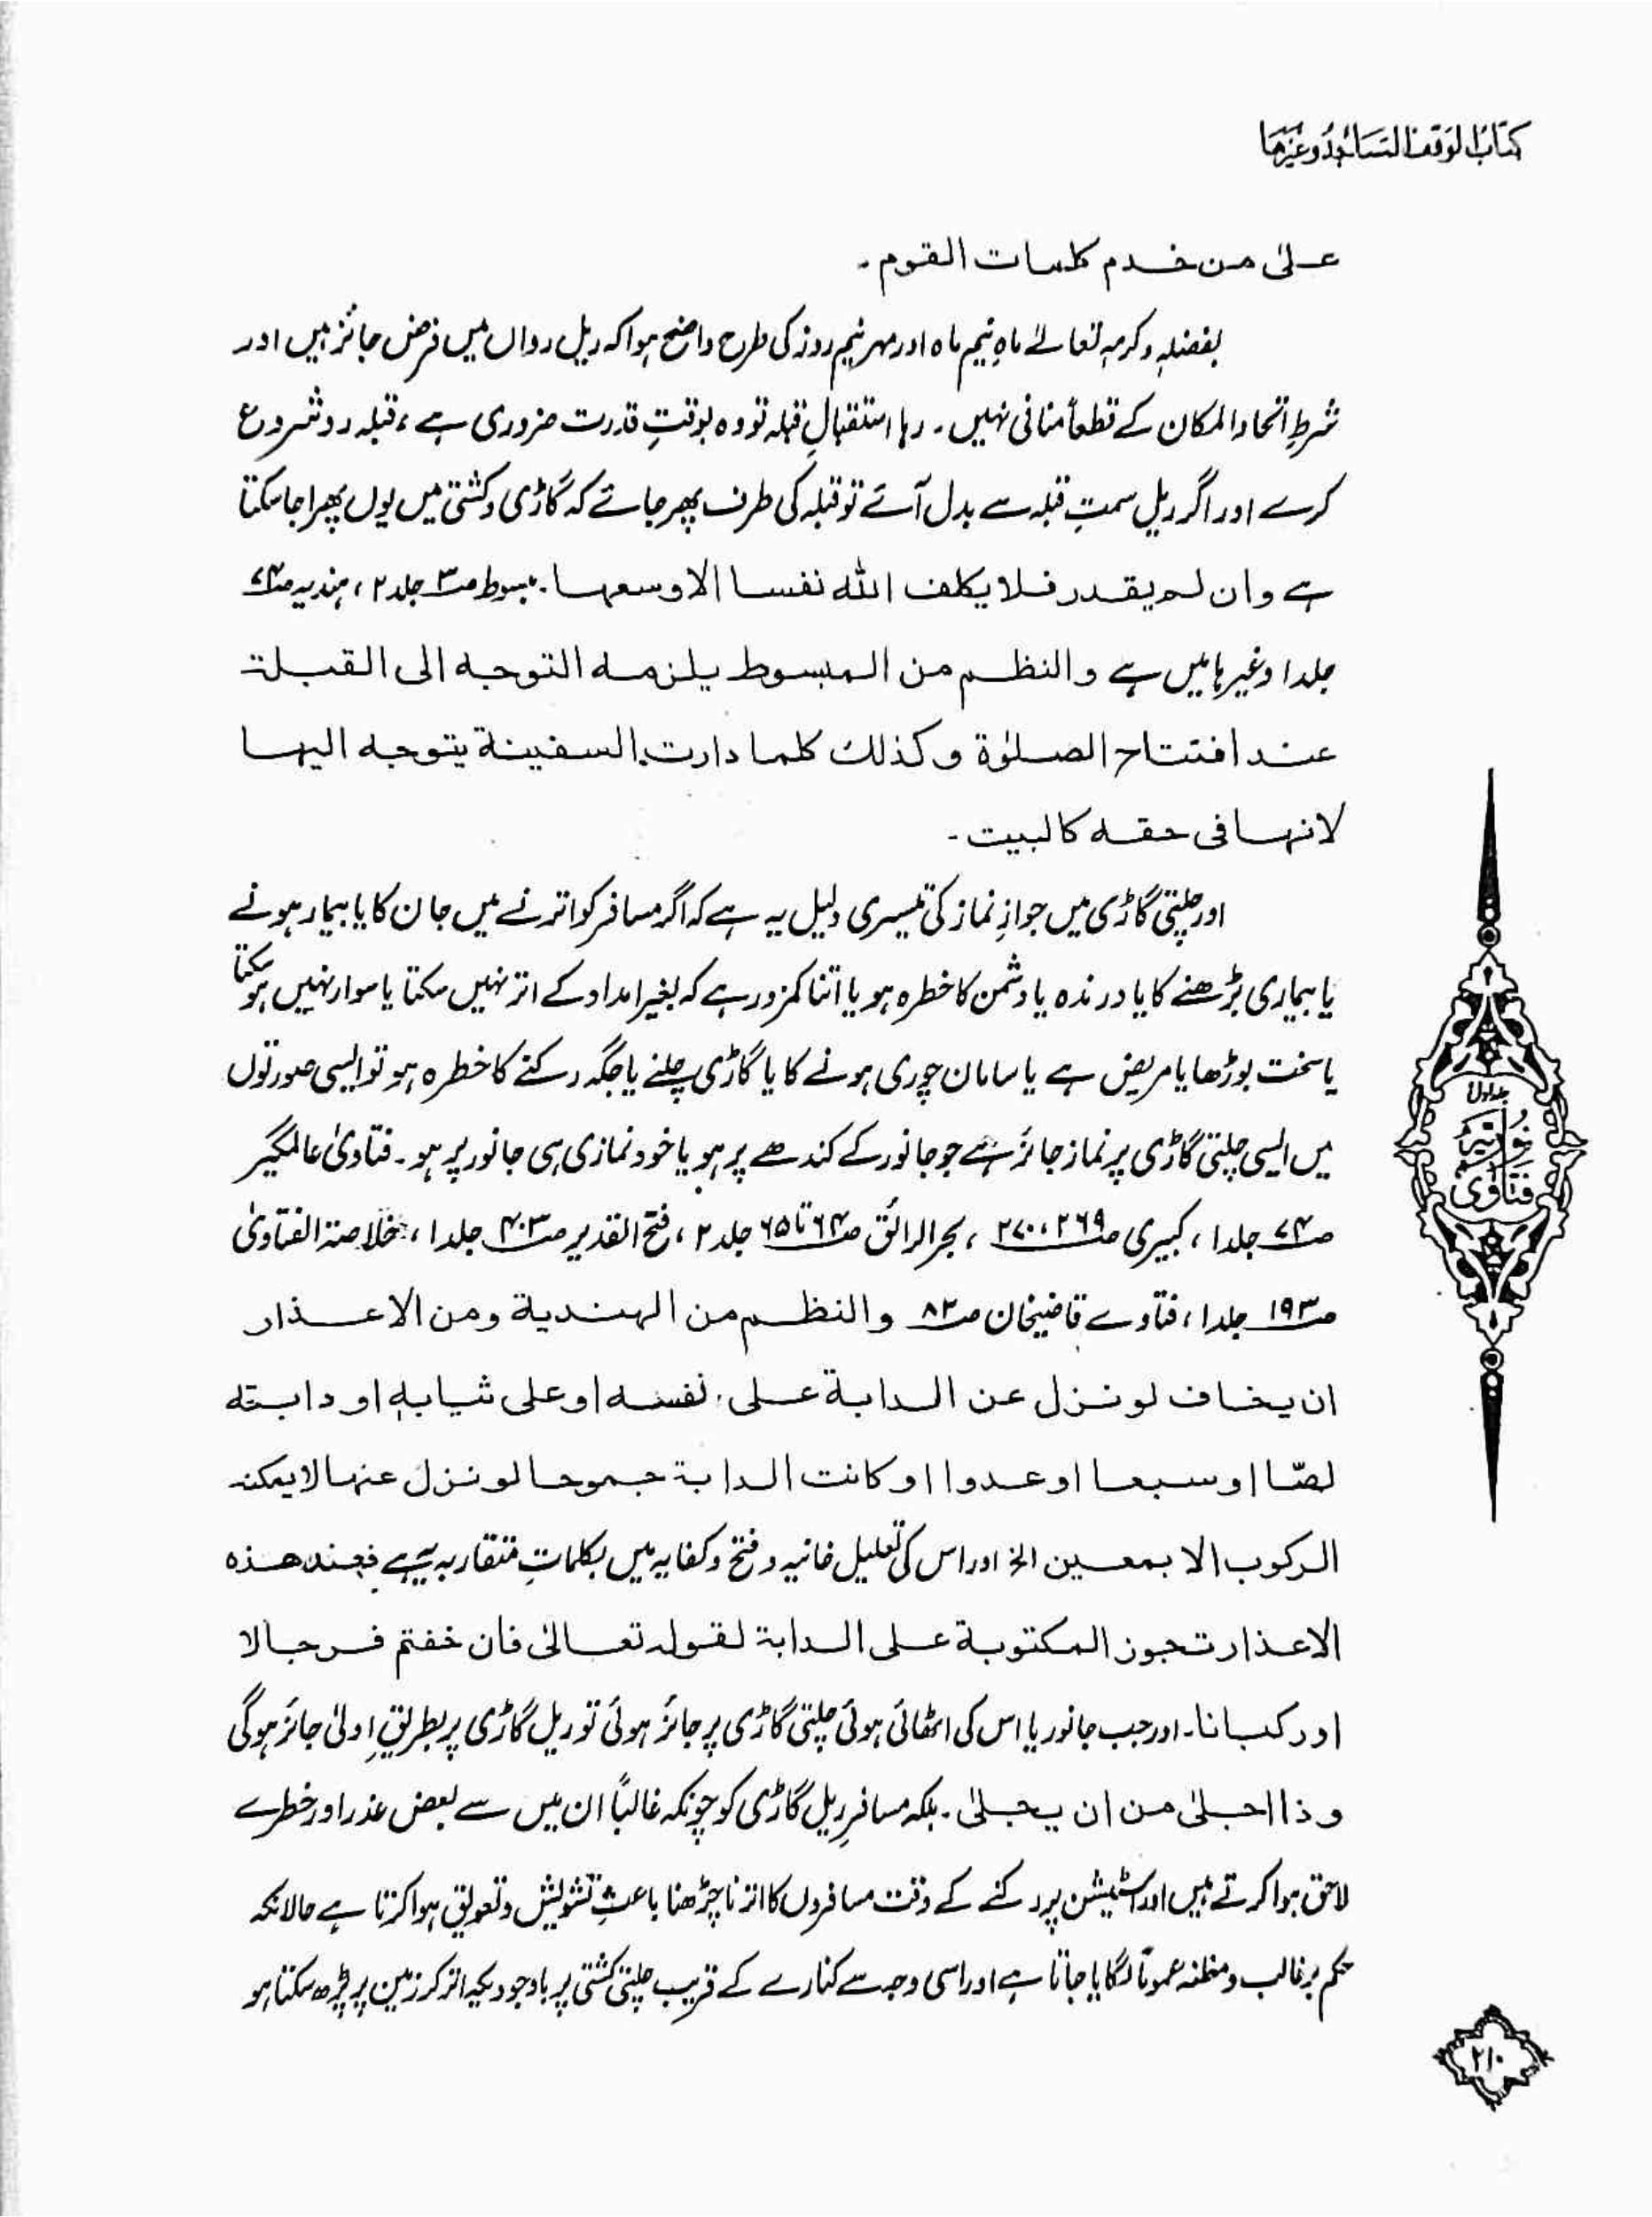 کتاب الوقف المساجد وغیرہا
علیٰ من خدم کلمات القوم۔
بفضلہٖ وکرمہٖ تعالےٰ ماہِ نیم ماہ اور مہر نیم روز کی طرح واضح ہوا کہ ریل رواں میں فرض جائز ہیں اور
شرطِ اتحاد المکان کے قطعاً منافی نہیں۔ رہا استقبالِ قبلہ تو وہ بوقتِ قدرت ضروری ہے، قبلہ رو شروع
کرے اور اگر ریل سمتِ قبلہ سے بدل آئے تو قبلہ کی طرف پھر جائے کہ گاڑی وکشتی میں یوں پھرا جا سکتا
ہے وان لم یقدر فلا یکلف اللہ نفسا الا وسعہا۔ مبسوط صـ۳ جلد ۲، ہندیہ صـ۷۴
جلد ا وغیرہا میں ہے والنظم من المبسوط یلزمہ التوجہ الی القبلۃ
عند افتتاح الصلوٰۃ وکذلک کلما دارت السفینۃ یتوجہ الیہا
لانہا فی حقہ کالبیت۔
اور چلتی گاڑی میں جوازِ نماز کی تیسری دلیل یہ ہے کہ اگر مسافر کو اترنے میں جان کا یا بیمار ہونے
یا بیماری بڑھنے کا یا درندہ یا دشمن کا خطرہ ہو یا اتنا کمزور ہے کہ بغیر امداد کے اتر نہیں سکتا یا سوار نہیں ہو سکتا
یا سخت بوڑھا یا مریض ہے یا سامان چوری ہونے کا یا گاڑی چلنے یا جگہ رکنے کا خطرہ ہو تو ایسی صورتوں
میں ایسی چلتی گاڑی پر نماز جائز ہے جو جانور کے کندھے پر ہو یا خود نمازی ہی جانور پر ہو۔ فتاویٰ عالمگیر
صـ۷۴ جلد ا، کبیری صـ۲۶۹، ۲۷۰، بحر الرائق صـ۶۴ تا ۶۵ جلد ۲، فتح القدیر صـ۴۰۳ جلد ا، خلاصۃ الفتاویٰ
صـ۱۹۳ جلد ا، فتاوے قاضیخان صـ۸۲ والنظم من الہندیۃ ومن الاعذار
ان یخاف لو نزل عن الدابۃ علی نفسہ او علی ثیابہٖ او دابتہ
لصّا او سبعا او عدوا او کانت الدابۃ جموحا لو نزل عنہا لا یمکنہ
الرکوب الا بمعین الخ اور اس کی تعلیل خانیہ وفتح وکفایہ میں بکلماتِ متقاربہ یہ ہے فعند ھذہ
الاعذار تجوز المکتوبۃ علی الدابۃ لقولہ تعالیٰ فان خفتم فرجالا
او رکبانا۔ اور جب جانور یا اس کی اٹھائی ہوئی چلتی گاڑی پر جائز ہوئی تو ریل گاڑی پر بطریقِ اولیٰ جائز ہوگی
وذا اجلیٰ من ان یجلیٰ۔ بلکہ مسافرِ ریل گاڑی کو چونکہ غالباً ان میں سے بعض عذر اور خطرے
لاحق ہوا کرتے ہیں اور اسٹیشن پر رکنے کے وقت مسافروں کا اترنا چڑھنا باعثِ تشویش وتعویق ہوا کرتا ہے حالانکہ
حکم بر غالب ومظنہ عموماً لگایا جاتا ہے اور اسی وجہ سے کنارے کے قریب چلتی کشتی پر باوجودیکہ اتر کر زمین پر پڑھ سکتا ہو
جلد اول
فتاویٰ نوریہ
۲۱۰